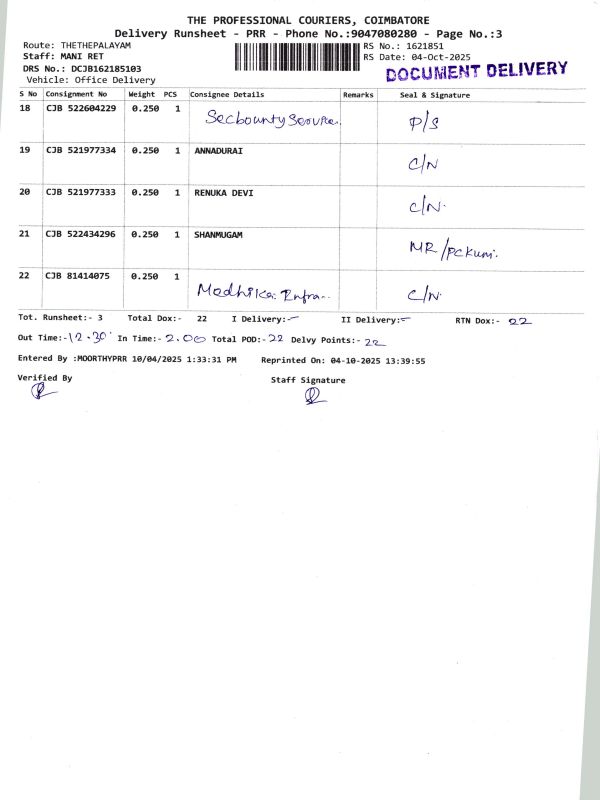 THE PROFESSIONAL COURIERS, COIMBATORE
Delivery Runsheet - PRR - Phone No.:9047080280 - Page No.:3
Route: THETHEPALAYAM RS No.: 1621851
Staff: MANI RET RS Date: 04-Oct-2025
DRS No.: DCJB162185103 DOCUMENT DELIVERY
Vehicle: Office Delivery
S No Consignment No Weight PCS Consignee Details Remarks Seal & Signature
18 CJB 522604229 0.250 1 P/S
19 CJB 521977334 0.250 1 ANNADURAI C/N
20 CJB 521977333 0.250 1 RENUKA DEVI C/N.
21 CJB 522434296 0.250 1 SHANMUGAM MR/
22 CJB 81414075 0.250 1 Medhika Infra.. C/N
Tot. Runsheet:- 3 Total Dox:- 22 I Delivery:- – II Delivery:- – RTN Dox:- 22
Out Time:- 12.30 In Time:- 2.00 Total POD:- 22 Delvy Points:- 22
Entered By :MOORTHYPRR 10/04/2025 1:33:31 PM Reprinted On: 04-10-2025 13:39:55
Verified By Staff Signature